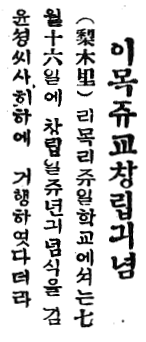 이목쥬교창립긔념
(梨木里)리목리쥬일학교에셔는七
월十六일에 창립일쥬년긔념식을 김
윤청씨사회하에 거행하엿다더라